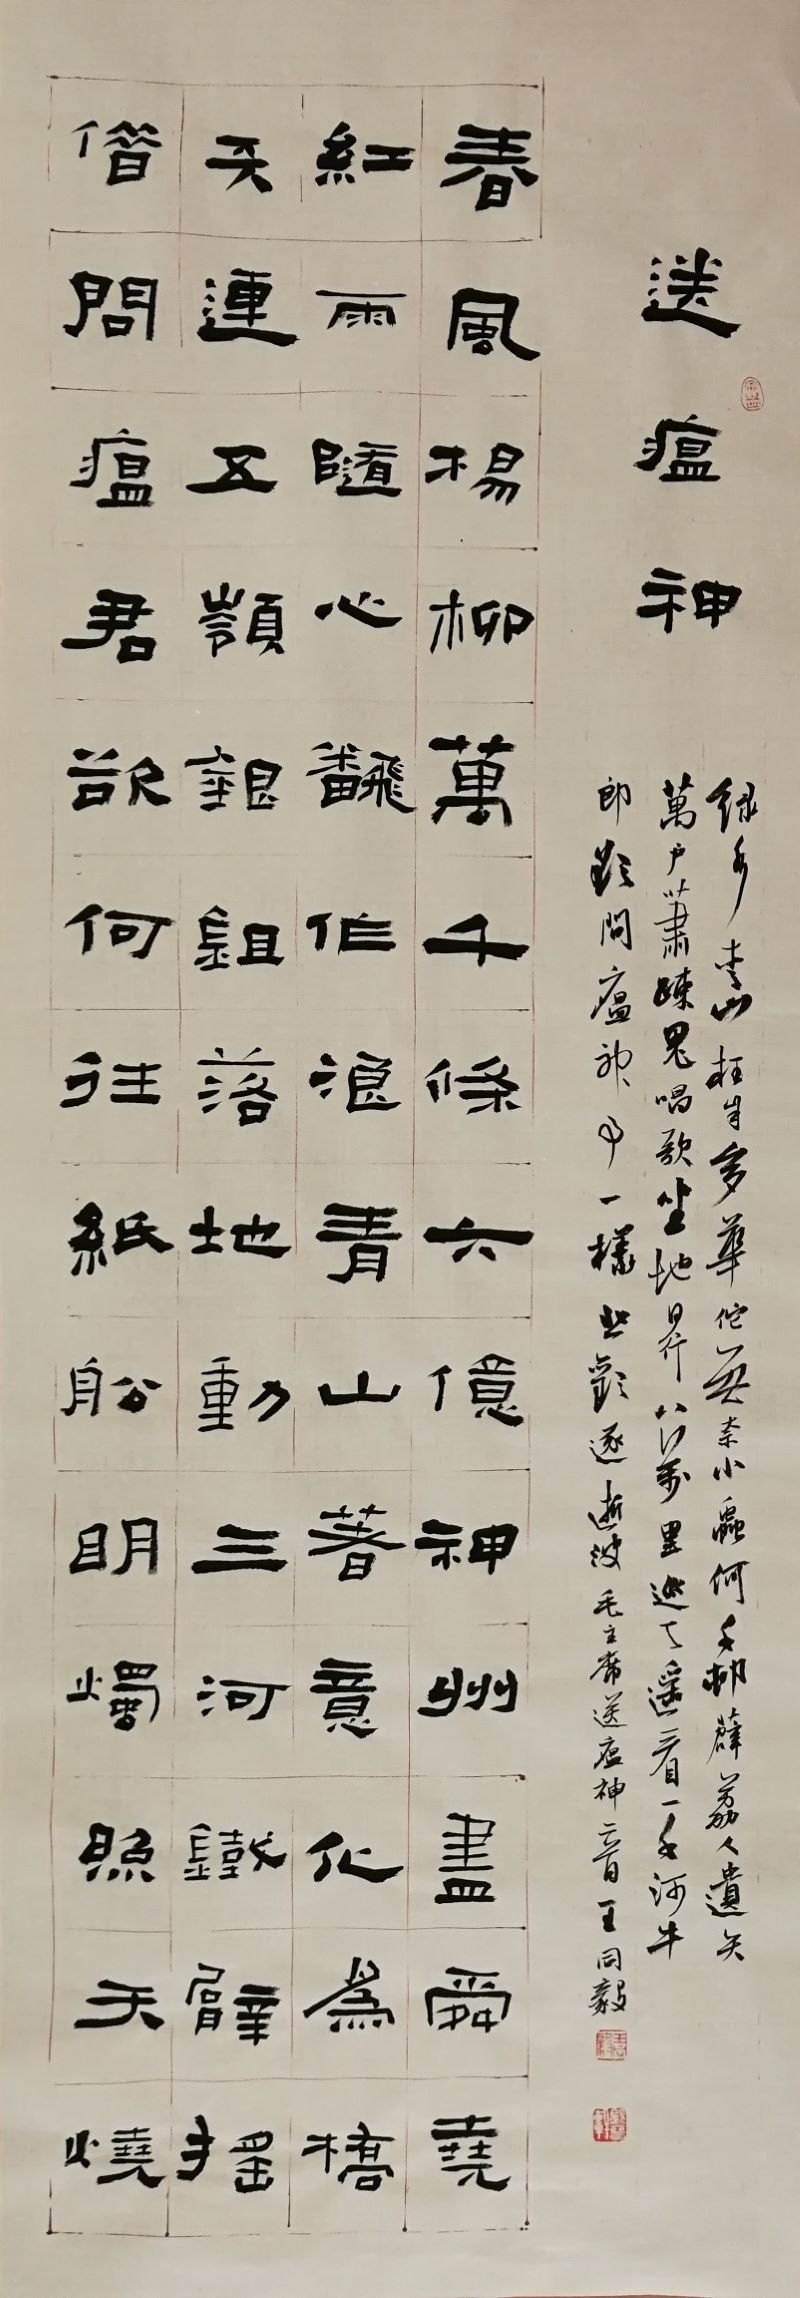 送瘟神
綠水青山枉自多華佗無奈小蟲何千村薜荔人遺矢
萬戶蕭疎鬼唱歌坐地日行八萬里巡天遥看一千河牛
郎欲問瘟神事一樣悲歡逐逝波毛主席送瘟神二首王同毅
春風楊柳萬千條六億神州盡舜堯
紅雨隨心翻作浪青山著意化為橋
天連五嶺銀鋤落地動三河鐵臂搖
借問瘟君欲何往紙船明燭照天燒